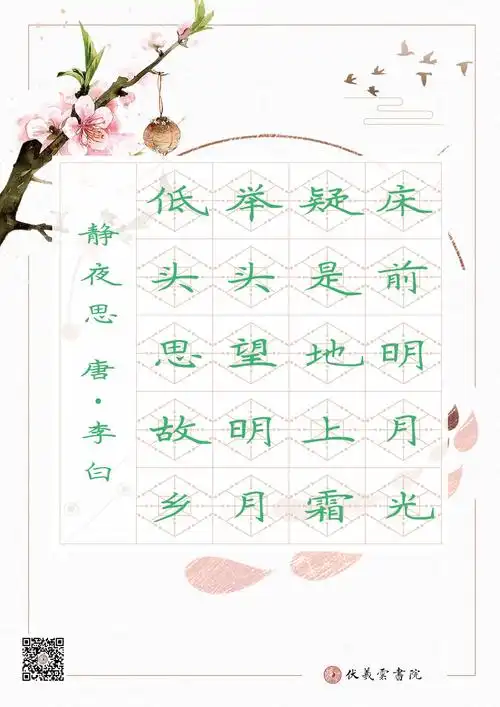 床前明月光
疑是地上霜
举头望明月
低头思故乡
静夜思 唐·李白
伏羲雲書院